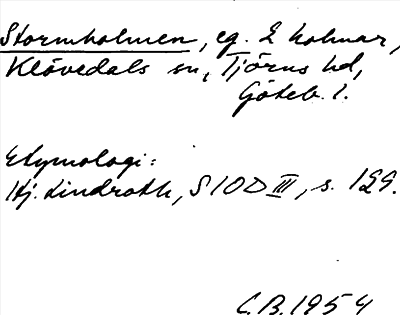 Stormholmen, eg. 2 holmar,
Klövedals sn, Tjörns hd,
Göteb. l.
Etymologi:
Hj. Lindroth, SIOD III, s. 199.
C.B. 1954